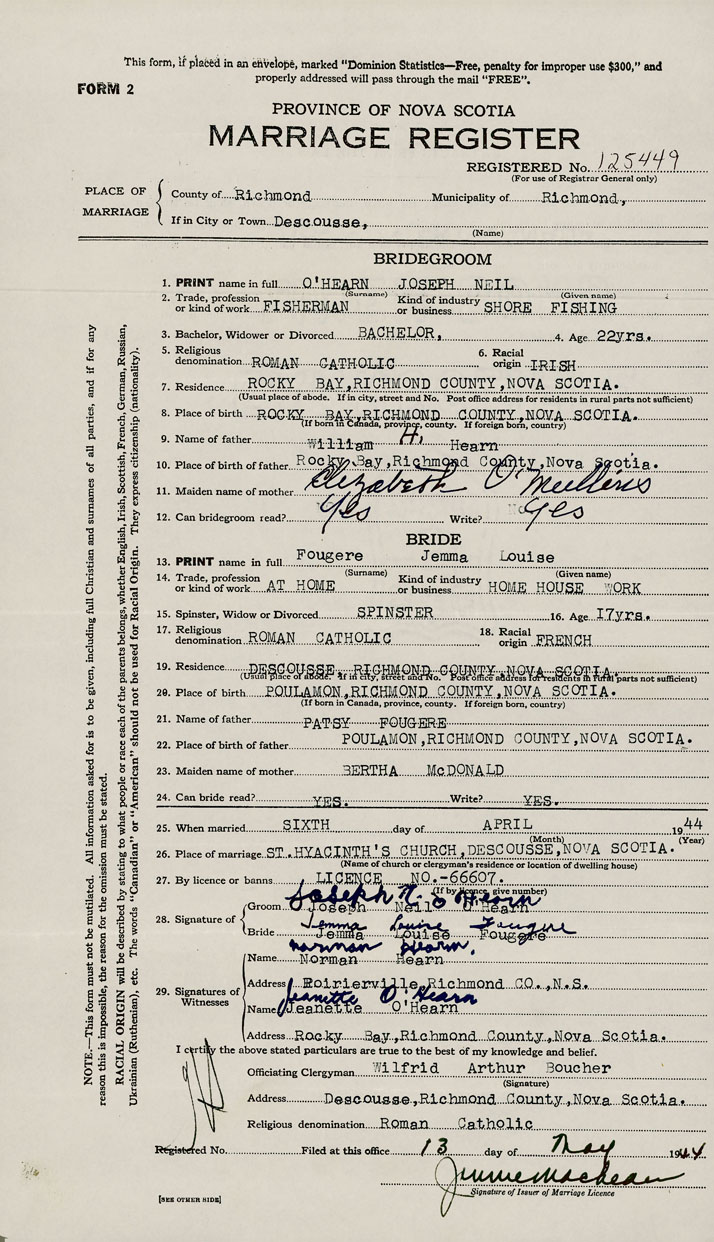 This form, if placed in an envelope, marked "Dominion Statistics—Free, penalty for improper use $300," and
properly addressed will pass through the mail "FREE".
FORM 2
PROVINCE OF NOVA SCOTIA
MARRIAGE REGISTER
REGISTERED No. 125449
(For use of Registrar General only)
PLACE OF MARRIAGE
County of Richmond Municipality of Richmond,
If in City or Town Descousse,
(Name)
BRIDEGROOM
1. PRINT name in full O'HEARN JOSEPH NEIL
(Surname) (Given name)
2. Trade, profession or kind of work FISHERMAN Kind of industry or business SHORE FISHING
3. Bachelor, Widower or Divorced BACHELOR, 4. Age 22yrs.
5. Religious denomination ROMAN CATHOLIC 6. Racial origin IRISH
7. Residence ROCKY BAY,RICHMOND COUNTY,NOVA SCOTIA.
(Usual place of abode. If in city, street and No. Post office address for residents in rural parts not sufficient)
8. Place of birth ROCKY BAY,RICHMOND COUNTY,NOVA SCOTIA.
(If born in Canada, province, county. If foreign born, country)
9. Name of father William H. Hearn
10. Place of birth of father Rocky Bay,Richmond County,Nova Scotia.
11. Maiden name of mother Elizabeth O'Mullins
12. Can bridegroom read? Yes Write? Yes
BRIDE
13. PRINT name in full Fougere Jemma Louise
(Surname) (Given name)
14. Trade, profession or kind of work AT HOME Kind of industry or business HOME HOUSE WORK
15. Spinster, Widow or Divorced SPINSTER 16. Age 17yrs.
17. Religious denomination ROMAN CATHOLIC 18. Racial origin FRENCH
19. Residence DESCOUSSE RICHMOND COUNTY NOVA SCOTIA.
(Usual place of abode. If in city, street and No. Post office address for residents in rural parts not sufficient)
20. Place of birth POULAMON,RICHMOND COUNTY,NOVA SCOTIA.
(If born in Canada, province, county. If foreign born, country)
21. Name of father PATSY FOUGERE
22. Place of birth of father POULAMON,RICHMOND COUNTY,NOVA SCOTIA.
23. Maiden name of mother BERTHA McDONALD
24. Can bride read? YES. Write? YES.
25. When married SIXTH day of APRIL 1944
(Month) (Year)
26. Place of marriage ST.HYACINTH'S CHURCH,DESCOUSSE,NOVA SCOTIA.
(Name of church or clergyman's residence or location of dwelling house)
27. By licence or banns LICENCE NO.-66607.
(If by licence, give number)
Joseph N. O Hearn
28. Signature of Groom Joseph Neil O'Hearn
Jemma Louise Fougere
Bride Jemma Louise Fougere
Norman Hearn.
29. Signatures of Witnesses
Name Norman Hearn
Address Poirierville,Richmond CO.,N.S.
Jeanette O'Hearn
Name Jeanette O'Hearn
Address Rocky Bay,Richmond County,Nova Scotia.
I certify the above stated particulars are true to the best of my knowledge and belief.
Officiating Clergyman Wilfrid Arthur Boucher
(Signature)
Address Descousse,Richmond County,Nova Scotia.
Religious denomination Roman Catholic
Registered No. Filed at this office 13 day of May 1944
Signature of Issuer of Marriage Licence
[SEE OTHER SIDE]
NOTE.—This form must not be mutilated. All information asked for is to be given, including full Christian and surnames of all parties, and if for any
reason this is impossible, the reason for the omission must be stated.
RACIAL ORIGIN will be described by stating to what people or race each of the parents belongs, whether English, Irish, Scottish, French, German, Russian,
Ukrainian (Ruthenian), etc. The words "Canadian" or "American" should not be used for Racial Origin. They express citizenship (nationality).